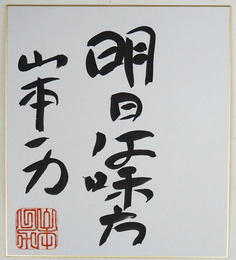 明日は味方
山本一力